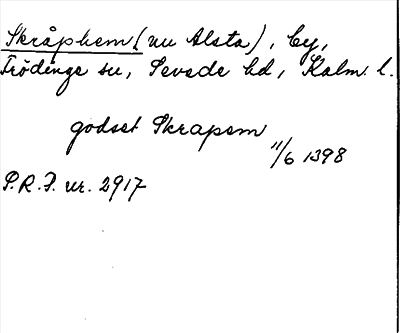 Skråphem (nu Alsta), by,
Frödinge sn, Sevede hd, Kalm. l.
godset Skrapem
11/6 1398
P.R.F. nr. 2917